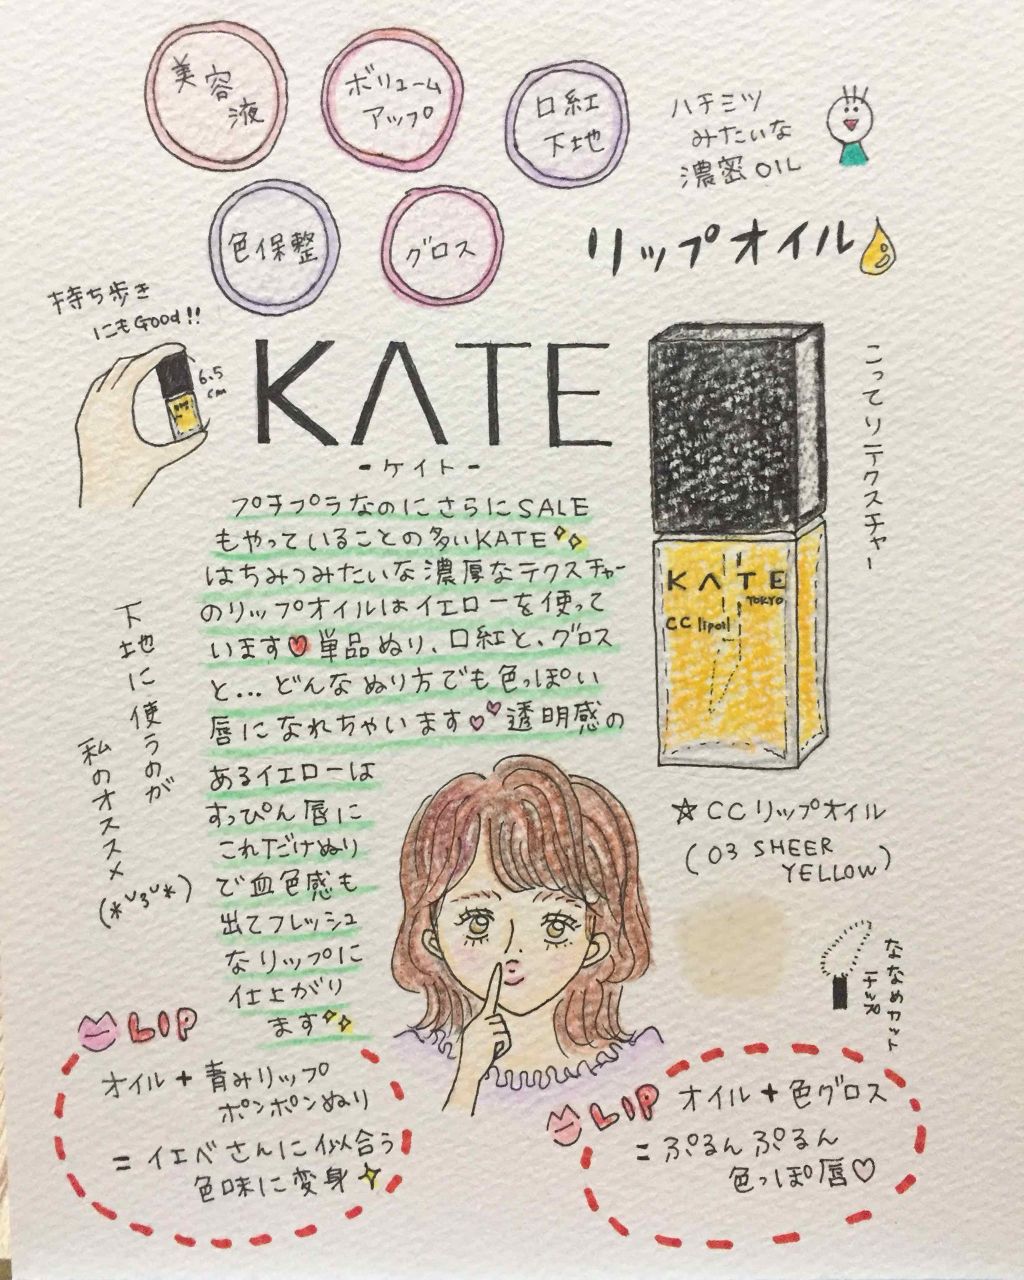 美容
液
ボリューム
アップ
口紅
下地
ハチミツ
みたいな
濃密OIL
色保整
グロス
リップオイル
持ち歩き
にもGood!!
6.5
cm
KATE
-ケイト-
こってりテクスチャー
KATE
TOKYO
CC lipoil
プチプラなのにさらにSALE
もやっていることの多いKATE
はちみつみたいな濃厚なテクスチャー
のリップオイルはイエローを使って
います♥単品ぬり、口紅と、グロス
と...どんなぬり方でも色っぽい
唇になれちゃいます♡♡透明感の
あるイエローは
すっぴん唇に
これだけぬり
で血色感も
出てフレッシュ
なリップに
仕上がり
ます
下地に使うのが
私のオススメ
(*˘³˘*)
☆CCリップオイル
(03 SHEER
YELLOW)
ななめカット
チップ
LIP
オイル+青みリップ
ポンポンぬり
=イエベさんに似合う
色味に変身
LIP オイル+色グロス
=ぷるんぷるん
色っぽ唇♡